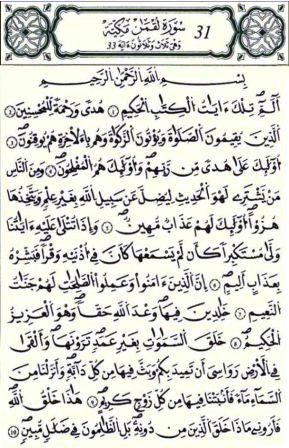 سُورَةُ لُقْمَٰنَ مَكِّيَّة 31
وَهْيَ ثَلَاثٌ وَثَلَاثُونَ ءَايَةً 33
بِسْمِ اللَّهِ الرَّحْمَٰنِ الرَّحِيمِ
أَلَٓمِّٓ تِلْكَ ءَايَٰتُ الْكِتَٰبِ الْحَكِيمِ 1 هُدىً وَرَحْمَةً لِّلْمُحْسِنِينَ 2
الَّذِينَ يُقِيمُونَ الصَّلَوٰةَ وَيُوتُونَ الزَّكَوٰةَ وَهُم بِالَاخِرَةِ هُمْ يُوقِنُونَ 3
أُوْلَٰٓئِكَ عَلَىٰ هُدىً مِّن رَّبِّهِمْ وَأُوْلَٰٓئِكَ هُمُ الْمُفْلِحُونَ 4 وَمِنَ النَّاسِ
مَنْ يَّشْتَرِي لَهْوَ الْحَدِيثِ لِيُضِلَّ عَن سَبِيلِ اللَّهِ بِغَيْرِ عِلْمٍ وَيَتَّخِذُهَا
هُزُؤاً اُوْلَٰٓئِكَ لَهُمْ عَذَابٌ مُّهِينٌ 5 وَإِذَا تُتْلَىٰ عَلَيْهِ ءَايَٰتُنَا
وَلَّىٰ مُسْتَكْبِراً كَأَن لَّمْ يَسْمَعْهَا كَأَنَّ فِي أُذْنَيْهِ وَقْراً فَبَشِّرْهُ
بِعَذَابٍ اَلِيمٍ 6 إِنَّ الَّذِينَ ءَامَنُواْ وَعَمِلُواْ الصَّٰلِحَٰتِ لَهُمْ جَنَّٰتُ
النَّعِيمِ 7 خَٰلِدِينَ فِيهَا وَعْدَ اللَّهِ حَقّاً وَهُوَ الْعَزِيزُ
الْحَكِيمُ 8 خَلَقَ السَّمَٰوَٰتِ بِغَيْرِ عَمَدٍ تَرَوْنَهَا وَأَلْقَىٰ
فِي الَارْضِ رَوَٰسِيَ أَن تَمِيدَ بِكُمْ وَبَثَّ فِيهَا مِن كُلِّ دَآبَّةٍ وَأَنزَلْنَا مِنَ
السَّمَآءِ مَآءً فَأَنبَتْنَا فِيهَا مِن كُلِّ زَوْجٍ كَرِيمٍ 9 هَٰذَا خَلْقُ اللَّهِ
فَأَرُونِي مَاذَا خَلَقَ الَّذِينَ مِن دُونِهِ بَلِ الظَّٰلِمُونَ فِي ضَلَٰلٍ مُّبِينٍ 10